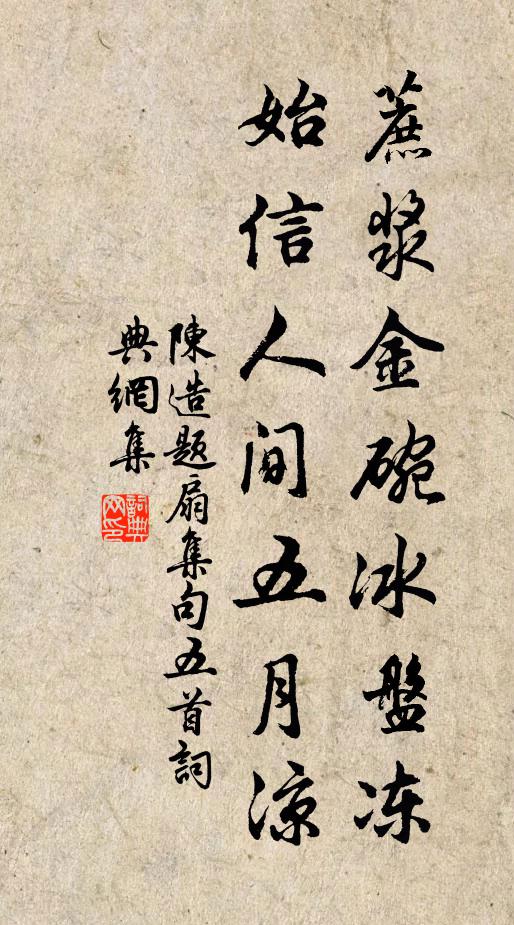 蔗漿金碗冰盤凍
始信人间五月涼
陳造題扇集句五首詞
典網集
詞典网印